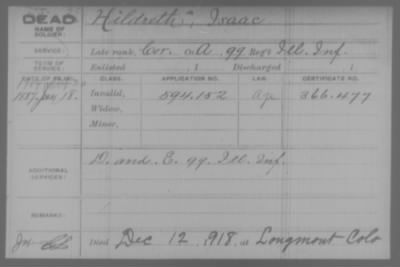 DEAD Hildreth, Isaac
NAME OF SOLDIER:
SERVICE: Late rank, Cor. Co A, 99 Reg't Ill. Inf.
TERM OF SERVICE: Enlisted , 1 Discharged , 1
DATE OF FILING. CLASS. APPLICATION NO. LAW. CERTIFICATE NO.
1887 Jan 18. Invalid, 594.152 366.477
Widow,
Minor,
ADDITIONAL SERVICES: D. and E. 99. Ill. Inf.
REMARKS:
Died Dec 12, 1918, at Longmont Colo